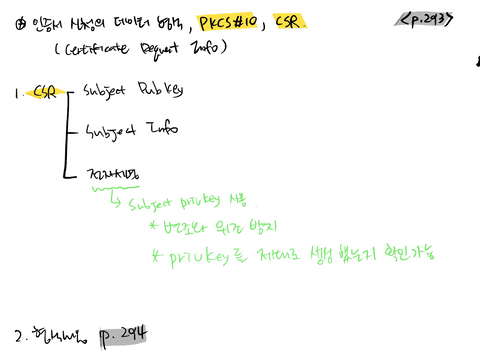 ⊕ 인증서 신청의 데이터 형식, PKCS#10, CSR. <p.293>
(Certificate Request Info)
1. CSR
Subject Pubkey
Subject Info
전자서명
Subject privkey 사용.
* 변조와 위조 방지
* privkey를 제대로 생성 했는지 확인가능
2. p.294